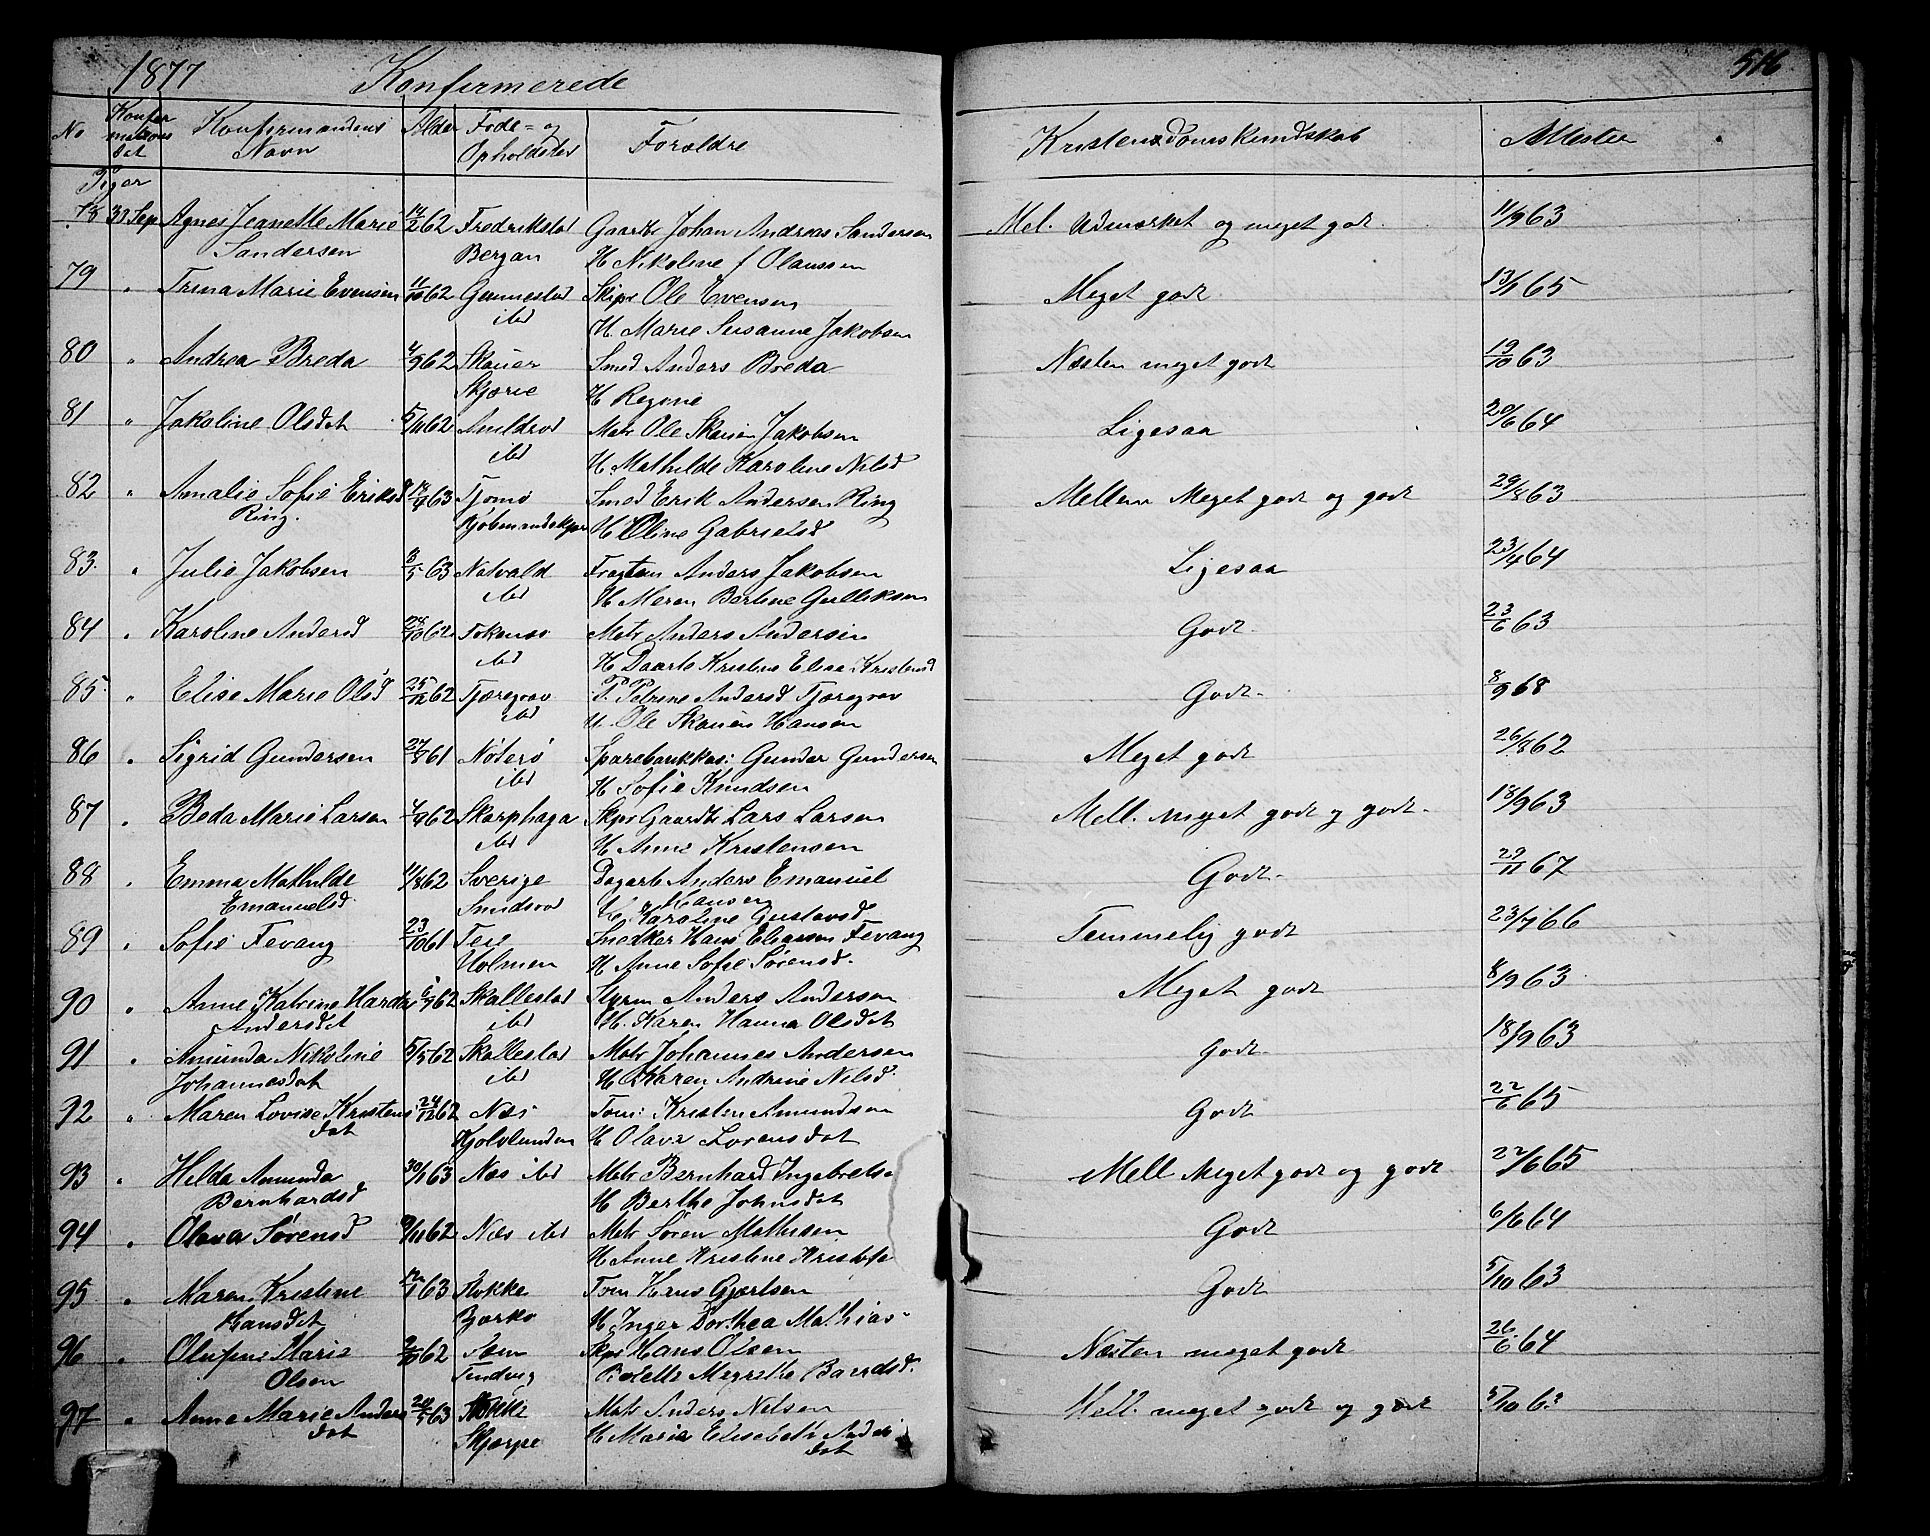 1877 Konfirmerede
516
No Konfirmations dat Konfirmandens Navn Alder Føde- og Opholdsted Forældre Kristendomskundskab Attester
Piger
78 30 Sep Agnes Jeanette Marie 14/2 62 Fredrikstad Gaardb Johan Andreas Sandersen Mel. Udmærket og meget godt. 11/9 63
Sandersen Bergan H Nikoline f Olaussen
79 " Trina Marie Evensen 11/10 62 Gunnestad Skipr Ole Evensen Meget godt. 13/1 65
ibd H Marie Susanne Jakobsen
80 " Andrea Breda 4/9 62 Skauen Smed Anders Breda Næsten meget godt 19/10 63
Skjærve H Regine
81 " Jakoline Olsdat 5/11 62 Smidsrod Matr Ole Skauen Jakobsen Ligesaa 20/6 64
ibd H Mathilde Karoline Nilsd
82 " Amalie Sofie Eriksd 13/4 63 Tjømø Smed Erik Andersen Ring Mellem Meget godt og godt 29/8 63
Ring. Kjøbmandskjær H Oline Gabrielsd
83. " Julie Jakobsen 3/5 63 Natvald Fragtem Anders Jakobsen Ligesaa 23/4 64
ibd H Maren Berline Gulliksen
84 " Karoline Andersd 28/10 62 Tokenes Matr Anders Andersen Godt. 23/6 63
ibd H Daarte Kristine Elise Kristensd
85. " Elise Marie Olsd 25/12 62 Tjæregrav P. Petrine Andersd Tjæregrav Godt. 8/9 68
ibd U. Ole Skauen Hansen
86 " Sigrid Gundersen 27/8 61 Nøterø Sparebankkas: Gunder Gundersen Meget godt 26/8 62
ibd H Sofie Knudsen
87 " Beda Marie Larsen 4/9 62 Skarphaga Skpr Gaardb Lars Larsen Mell. meget godt og godt. 18/9 63
ibd H Anne Kristensen
88 " Emma Mathilde 11/8 62 Sverige Dagarb Anders Emanuel Godt. 29/11 67
Emanuelsd Smidsrod Hansen
H Karoline Gustavsd
89 " Sofie Fevang 23/10 61 Teie Snedker Hans Eliassen Fevang Temmelig godt 23/7 66
Holmen H Anne Sofie Sørensd.
90 " Anne Katrine Hardine 6/9 62 Skallestad Styrm Anders Andersen Meget godt 8/9 63
Andersdat ibd H. Karen Hanna Olsdat
91 " Amunda Nikoline 5/5 62 Skallestad Matr Johannes Andersen Godt. 18/9 63
Johannesdat ibd H Karen Andrine Nilsd.
92 " Maren Lovise Kristens 24/12 62 Næs Tom: Kristen Amundsen Godt 22/6 65
dat Kjolvlunden H Olava Lorensdat
93 " Helda Amunda 30/1 63 Næs ibd Matr Bernhard Ingebretse Mell Meget godt og godt 22/6 65
Bernhardsd H Berthe Johnsdat
94 " Olava Sørensd 9/11 62 Næs ibd Matr Søren Mathisen Godt 6/6 64
H Anne Kristine Kristofe
95 " Maren Kristine 12/1 63 Stokke Tom Hans Gjertsen Godt 5/10 63
Hansdat Bjerkø H Inger Dorthea Mathias
96 " Olufine Marie 2/10 62 Sem Skpr Hans Olsen Næsten meget godt 26/6 64
Olsen Tendvig Bolette Megrethe Baardsd.
97 " Anne Marie Anders 20/5 63 Stokke Matr Anders Nilsen Mell. meget godt og godt 5/10 63
dat Skjærpe H Marie Elisabeth Anders
dat